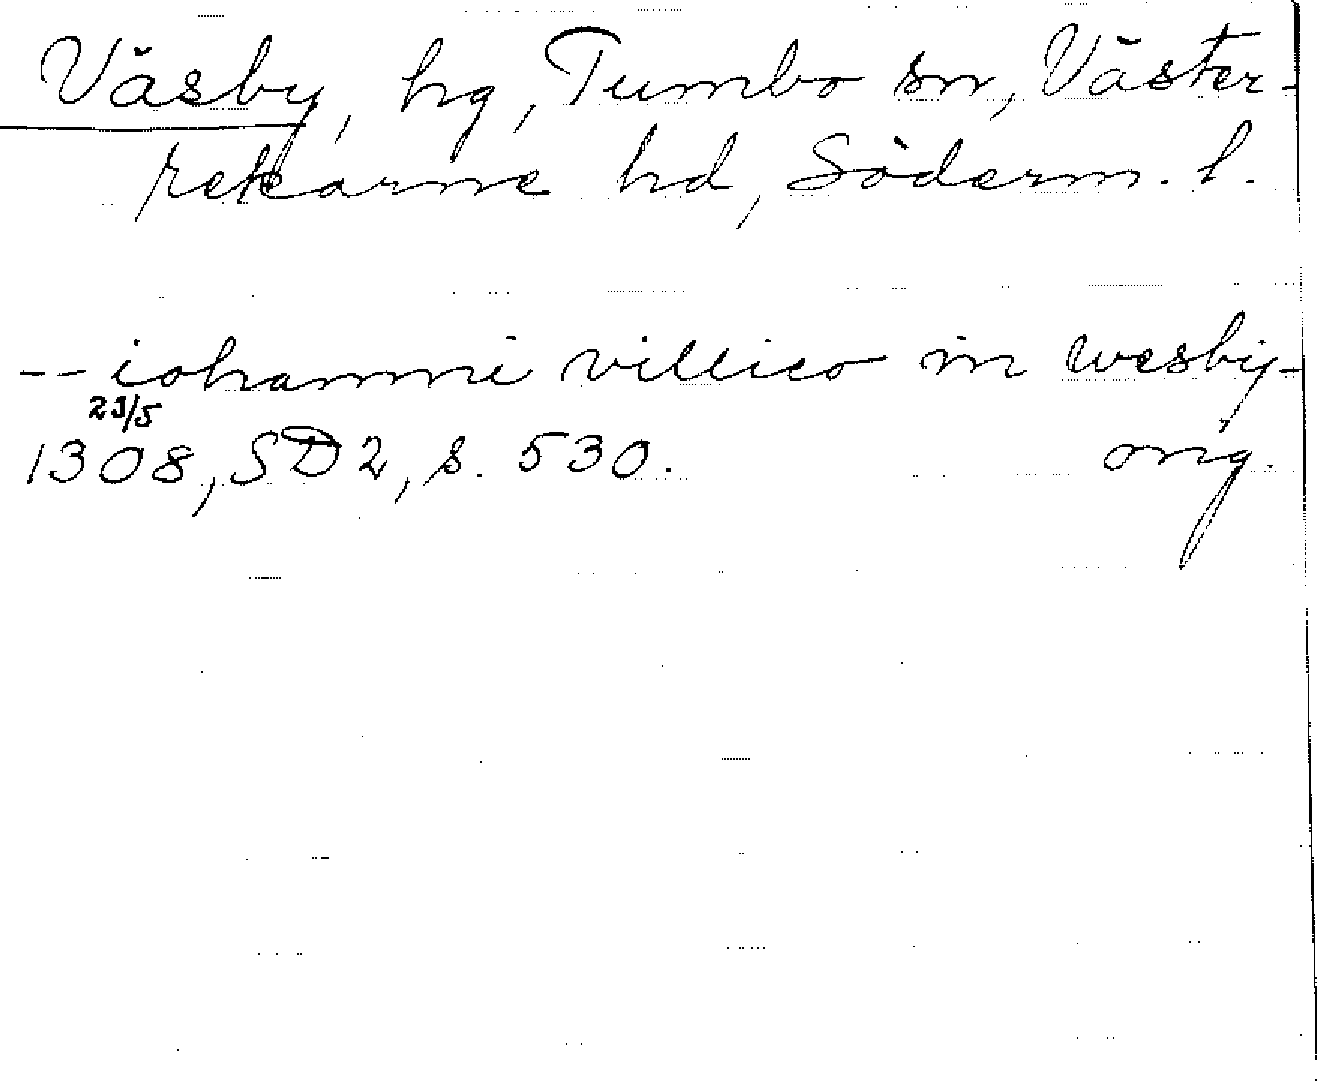 Väsby, hg, Tumbo sn, Väster-
rekarne hd, Söderm. l.
-- iohanni villico in wesby -
23/5
1308, SD 2, s. 530. orig.